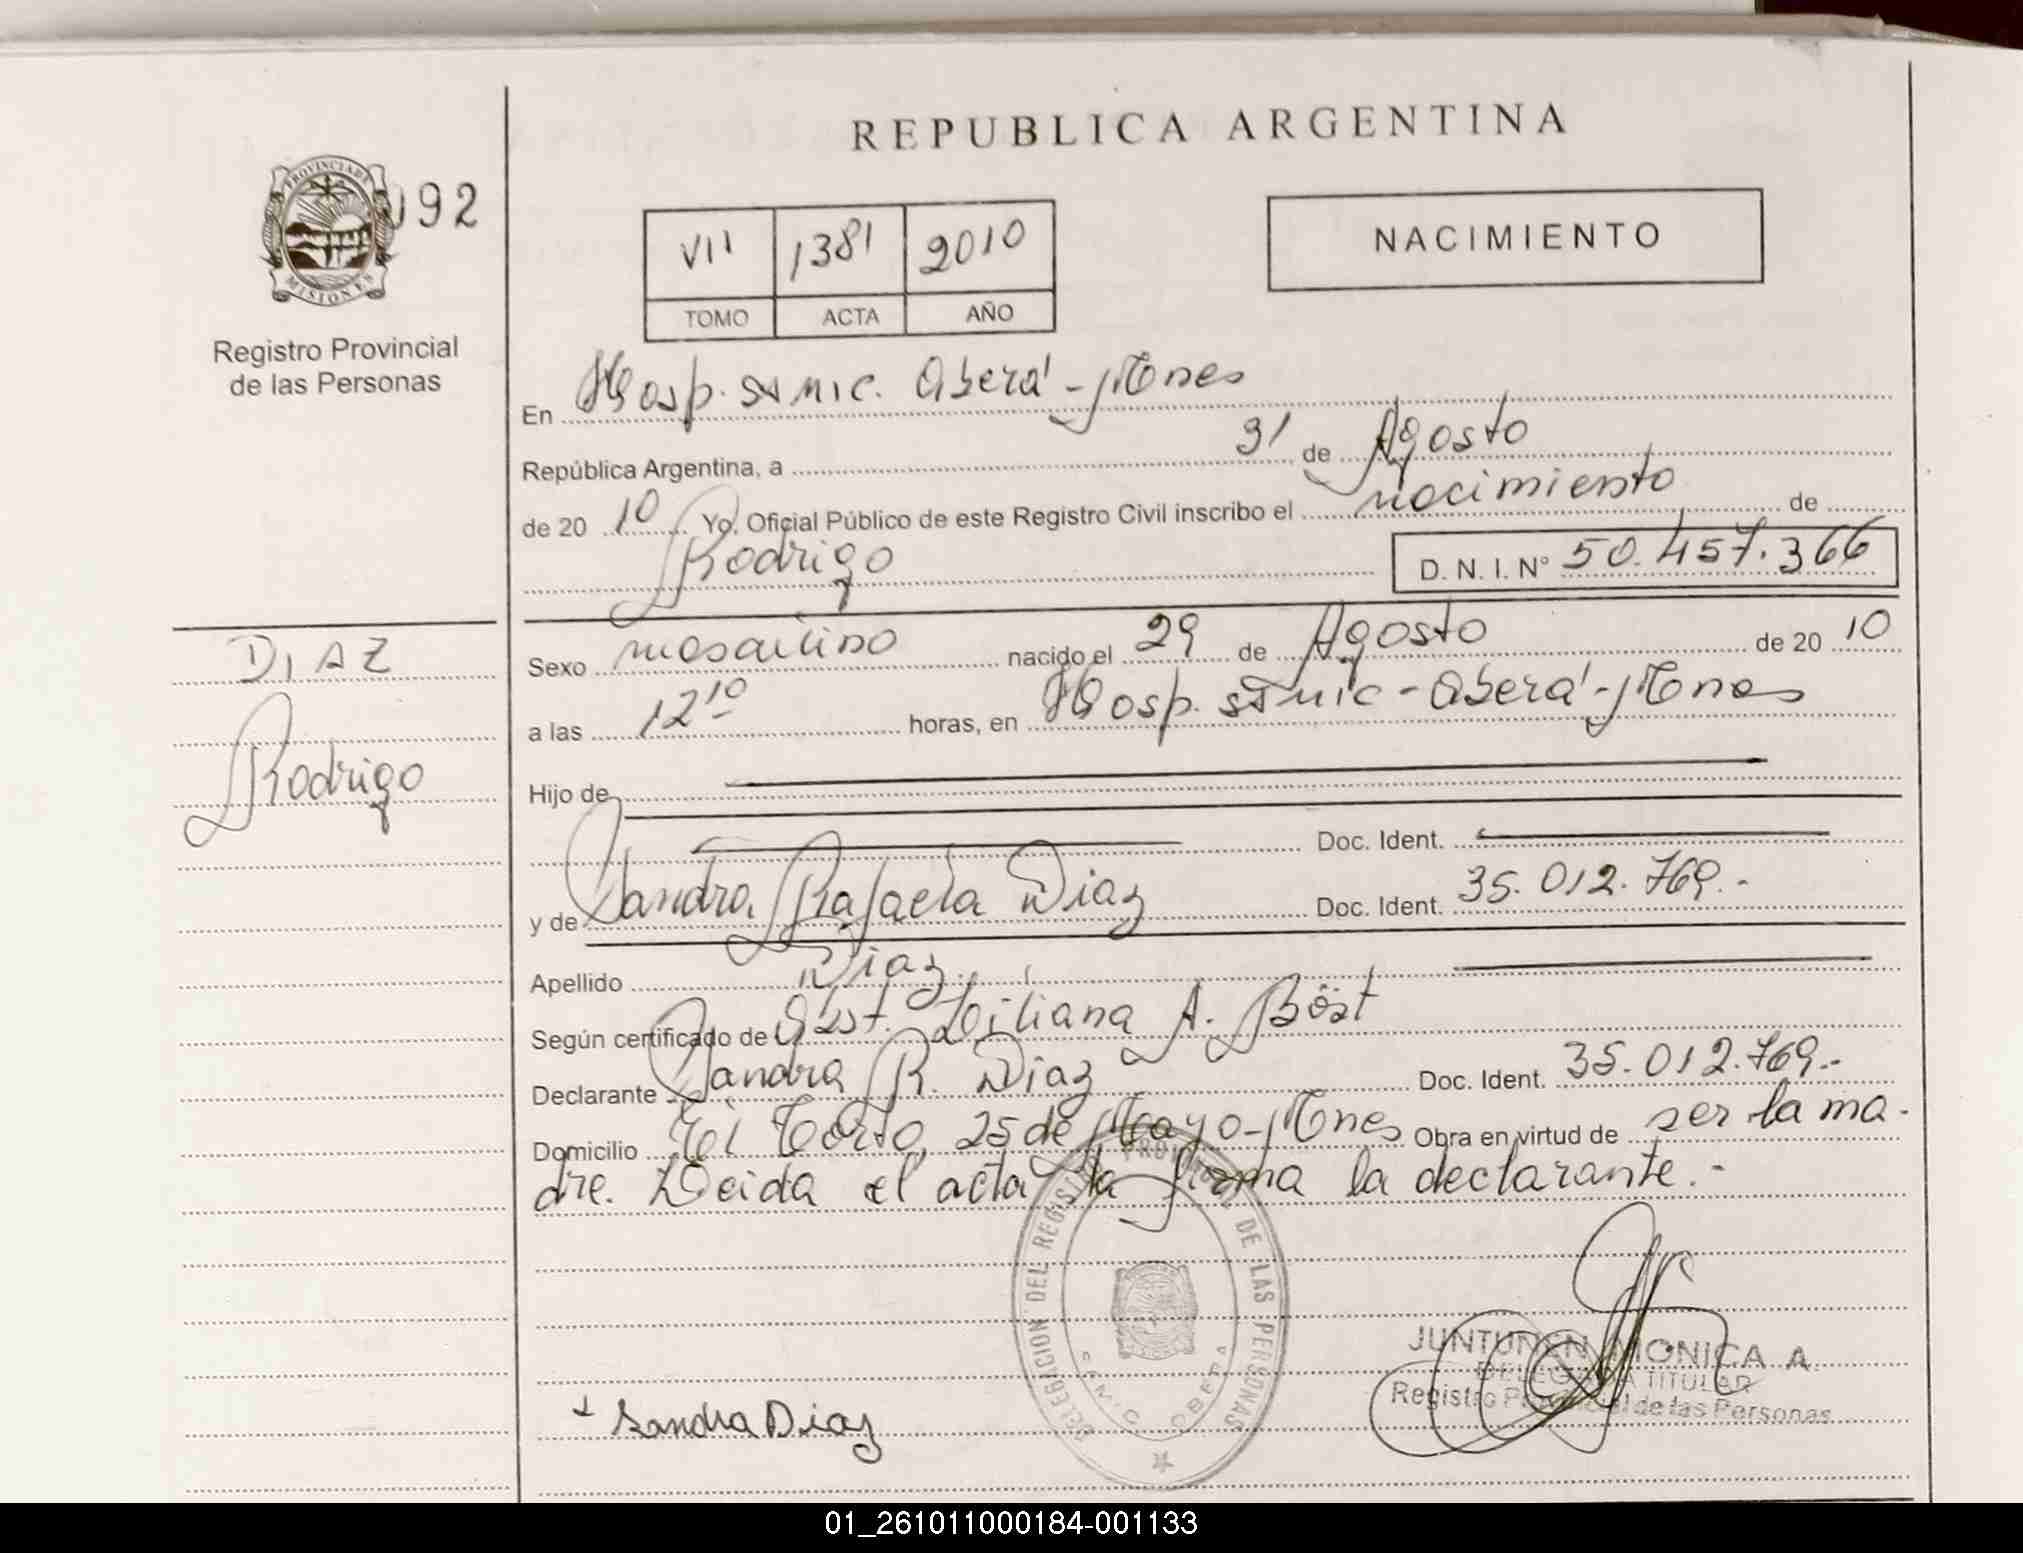 REPUBLICA ARGENTINA
PROVINCIA DE
MISIONES
092
Registro Provincial
de las Personas
VII 1381 2010
TOMO ACTA AÑO
NACIMIENTO
En Hosp. SAMIC. Oberá - Mnes
República Argentina, a 31 de Agosto
de 20 10 Yo, Oficial Público de este Registro Civil inscribo el nacimiento de
Rodrigo D. N. I. Nº 50.457.366
DIAZ
Rodrigo
Sexo masculino nacido el 29 de Agosto de 20 10
a las 12 10 horas, en Hosp. SAMIC - Oberá - Mnes
Hijo de
Doc. Ident.
y de Sandra Rafaela Diaz Doc. Ident. 35.012.769.-
Apellido Diaz
Según certificado de Obst. Liliana A. Böst
Declarante Sandra R. Diaz Doc. Ident. 35.012.769.-
Domicilio El Torto, 25 de Mayo - Mnes Obra en virtud de ser la ma-
dre. Leida el acta la firma la declarante.-
DELEGACION DEL REGISTRO PROVINCIAL DE LAS PERSONAS
SAMIC OBERA
JUNTUNEN MONICA A.
DELEGADA TITULAR
Registro Provincial de las Personas
Sandra Diaz
01_261011000184-001133